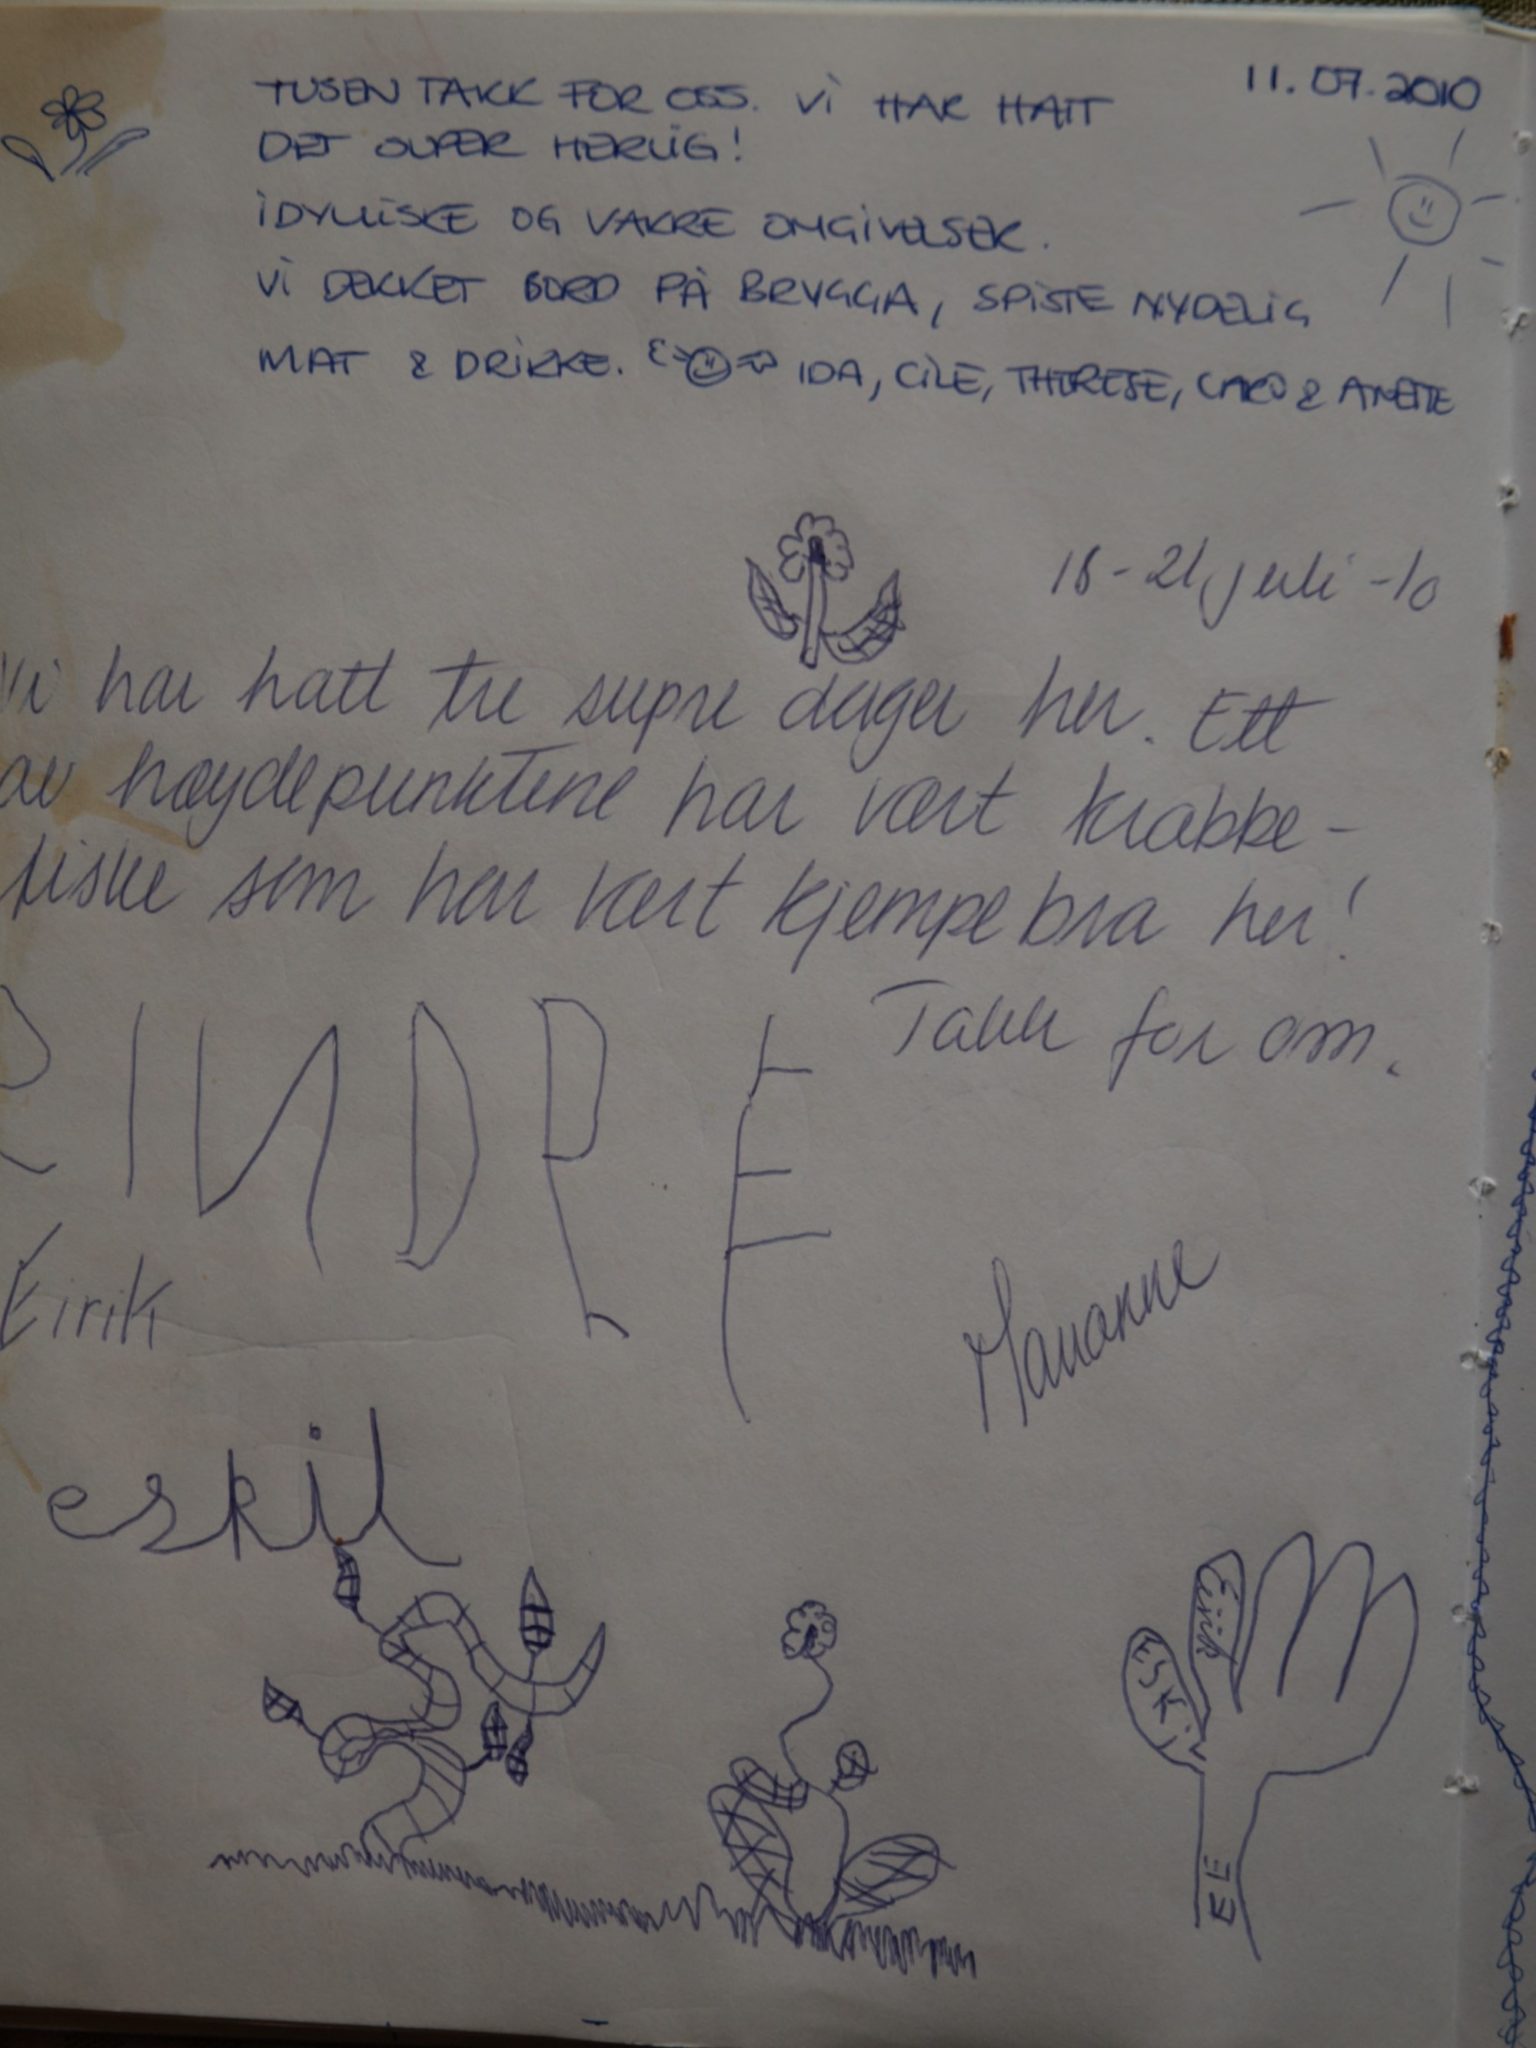 11.07.2010
TUSEN TAKK FOR OSS. Vi HAR HATT
DET SUPER HERLIG!
IDYLLISKE OG VAKRE OMGIVELSER.
Vi DEKKET BORD PÅ BRYGGA, SPISTE NYDELIG
MAT & DRIKKE. IDA, CILE, THERESE, CARO & ANETTE
18-21 juli -10
Vi har hatt tre supre dager her. Ett
av høydepunktene har vært krabbe-
fiske som har vært kjempebra her!
Takk for oss.
SINDRE
Eirik
Marianne
eskil
Eirik
ESKi
ELE